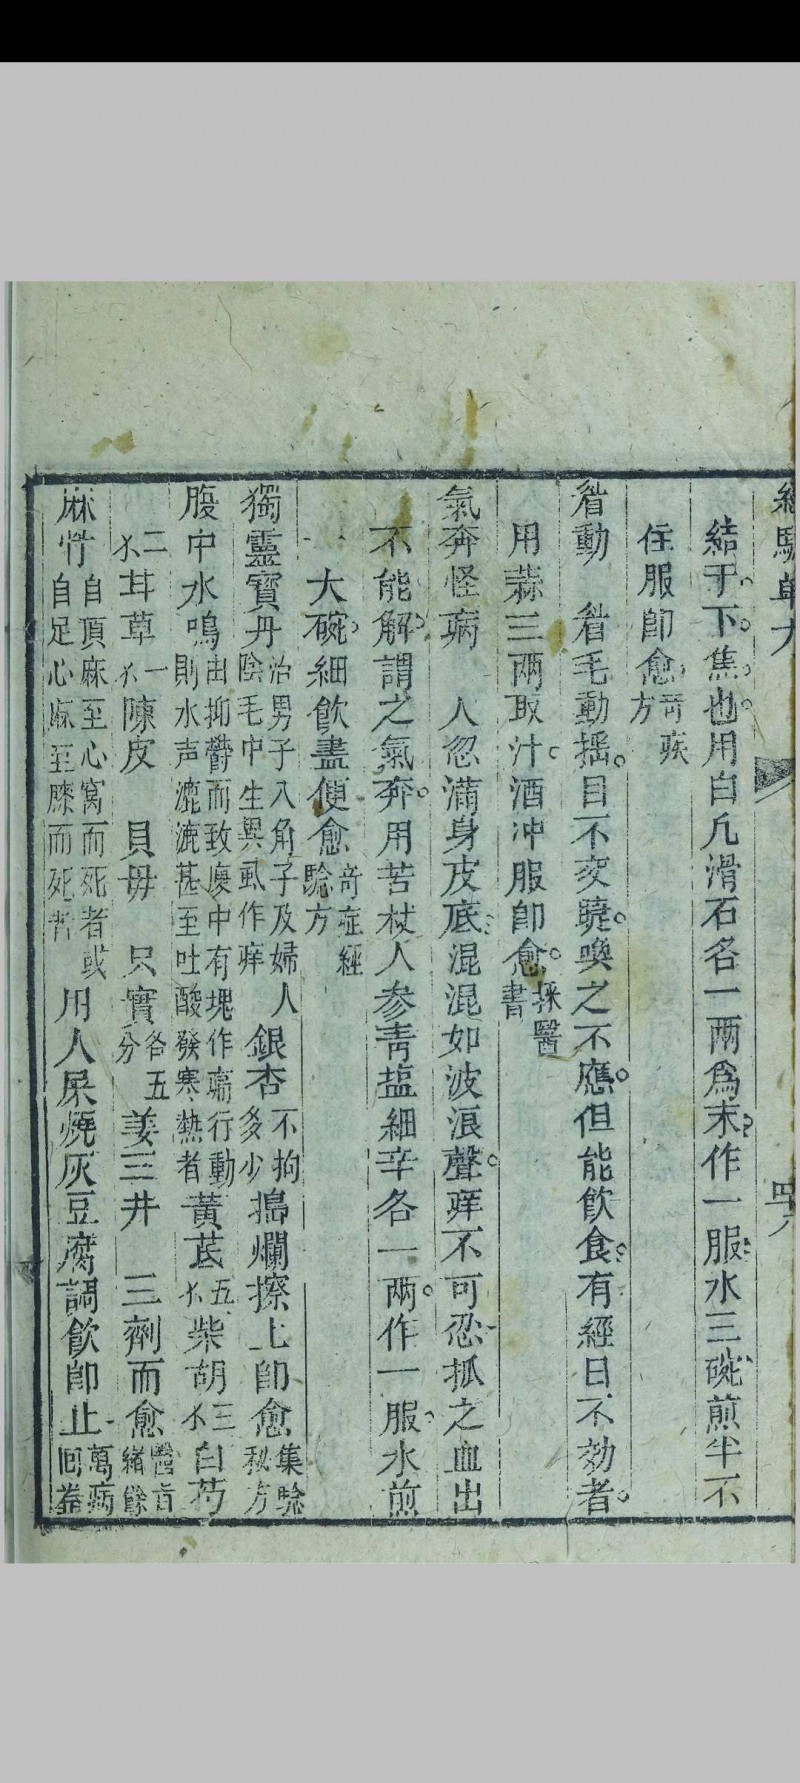 結于下焦也用白凡滑石各一兩爲末作一服水三碗煎半不
住服卽愈奇疾方
眉動　眉毛動揺目不交睫喚之不應但能飲食有經日不効者
用蒜三兩取汁酒冲服卽愈採醫書
氣奔怪病　人忽滿身皮底混混如波浪聲痒不可忍抓之血出
不能解謂之氣奔用苦杖人参靑塩細辛各一两作一服水煎
大碗細飲盡便愈奇症經驗方
獨靈寳丹治男子入角子及婦人陰毛中生異虱作痒銀杏不拘多少搗爛擦上卽愈集驗秘方
腹中水鳴由抑欝而致腹中有塊作痛行動則水声漉漉甚至吐酸發寒熱者黃芪五分柴胡三分白芍
二分甘草一分陳皮　貝母　只實各五分姜三片　三劑而愈醫宗緒餘
麻竹自頂麻至心窩而死者或自足心麻至膝而死者用人屎燒灰豆腐調飲卽止萬病回春